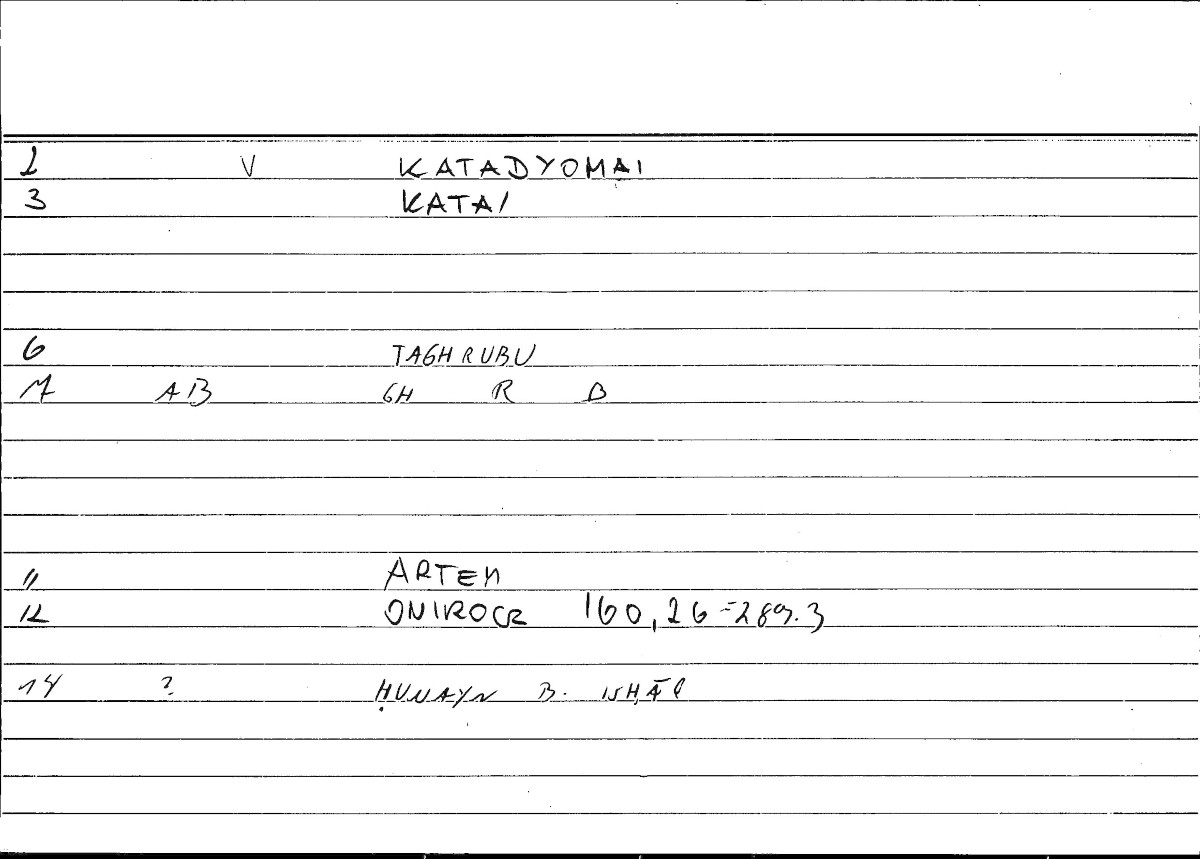 2 V KATADYOMAI
3 KATAI
6 TAGHRUBU
7 AB GH R B
11 ARTEM
12 ONIROCR 160,26=289.3
14 ? ḤUNAYN B. ISḤĀQ